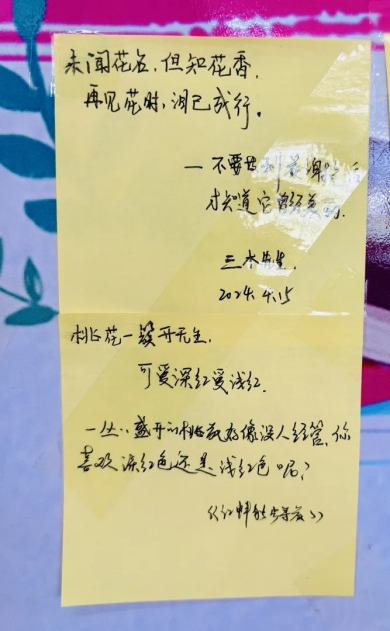 未闻花名，但知花香，
再见花时，泪已成行。
一不要等到花谢以后
才知道它曾经美丽.
三水先生.
2024.4.15
桃花一簇开无主.
可爱深红爱浅红.
一丛丛盛开的桃花好像没人经管，你
喜欢深红色还是浅红色呢？
《江畔独步寻花》